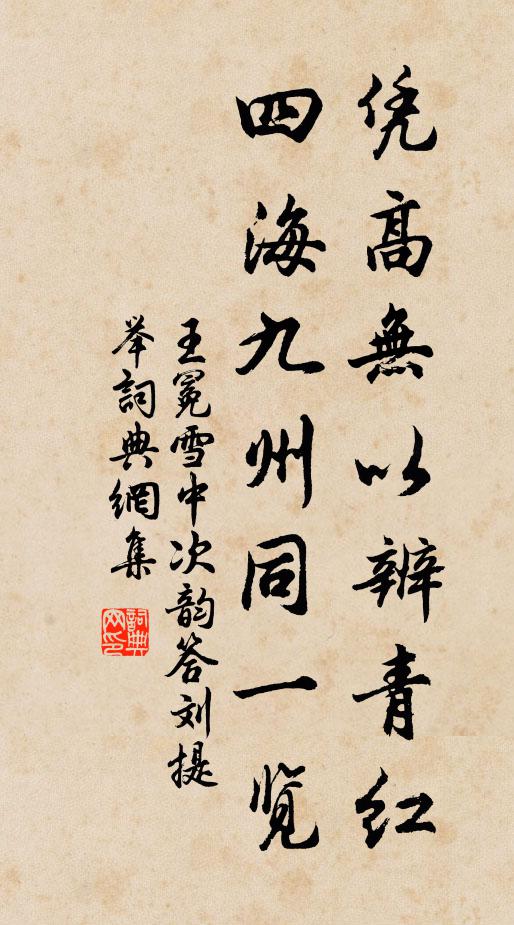 凭高無以辨青红
四海九州同一览
王冕雪中次韵答刘提
举詞典網集
詞典
网印